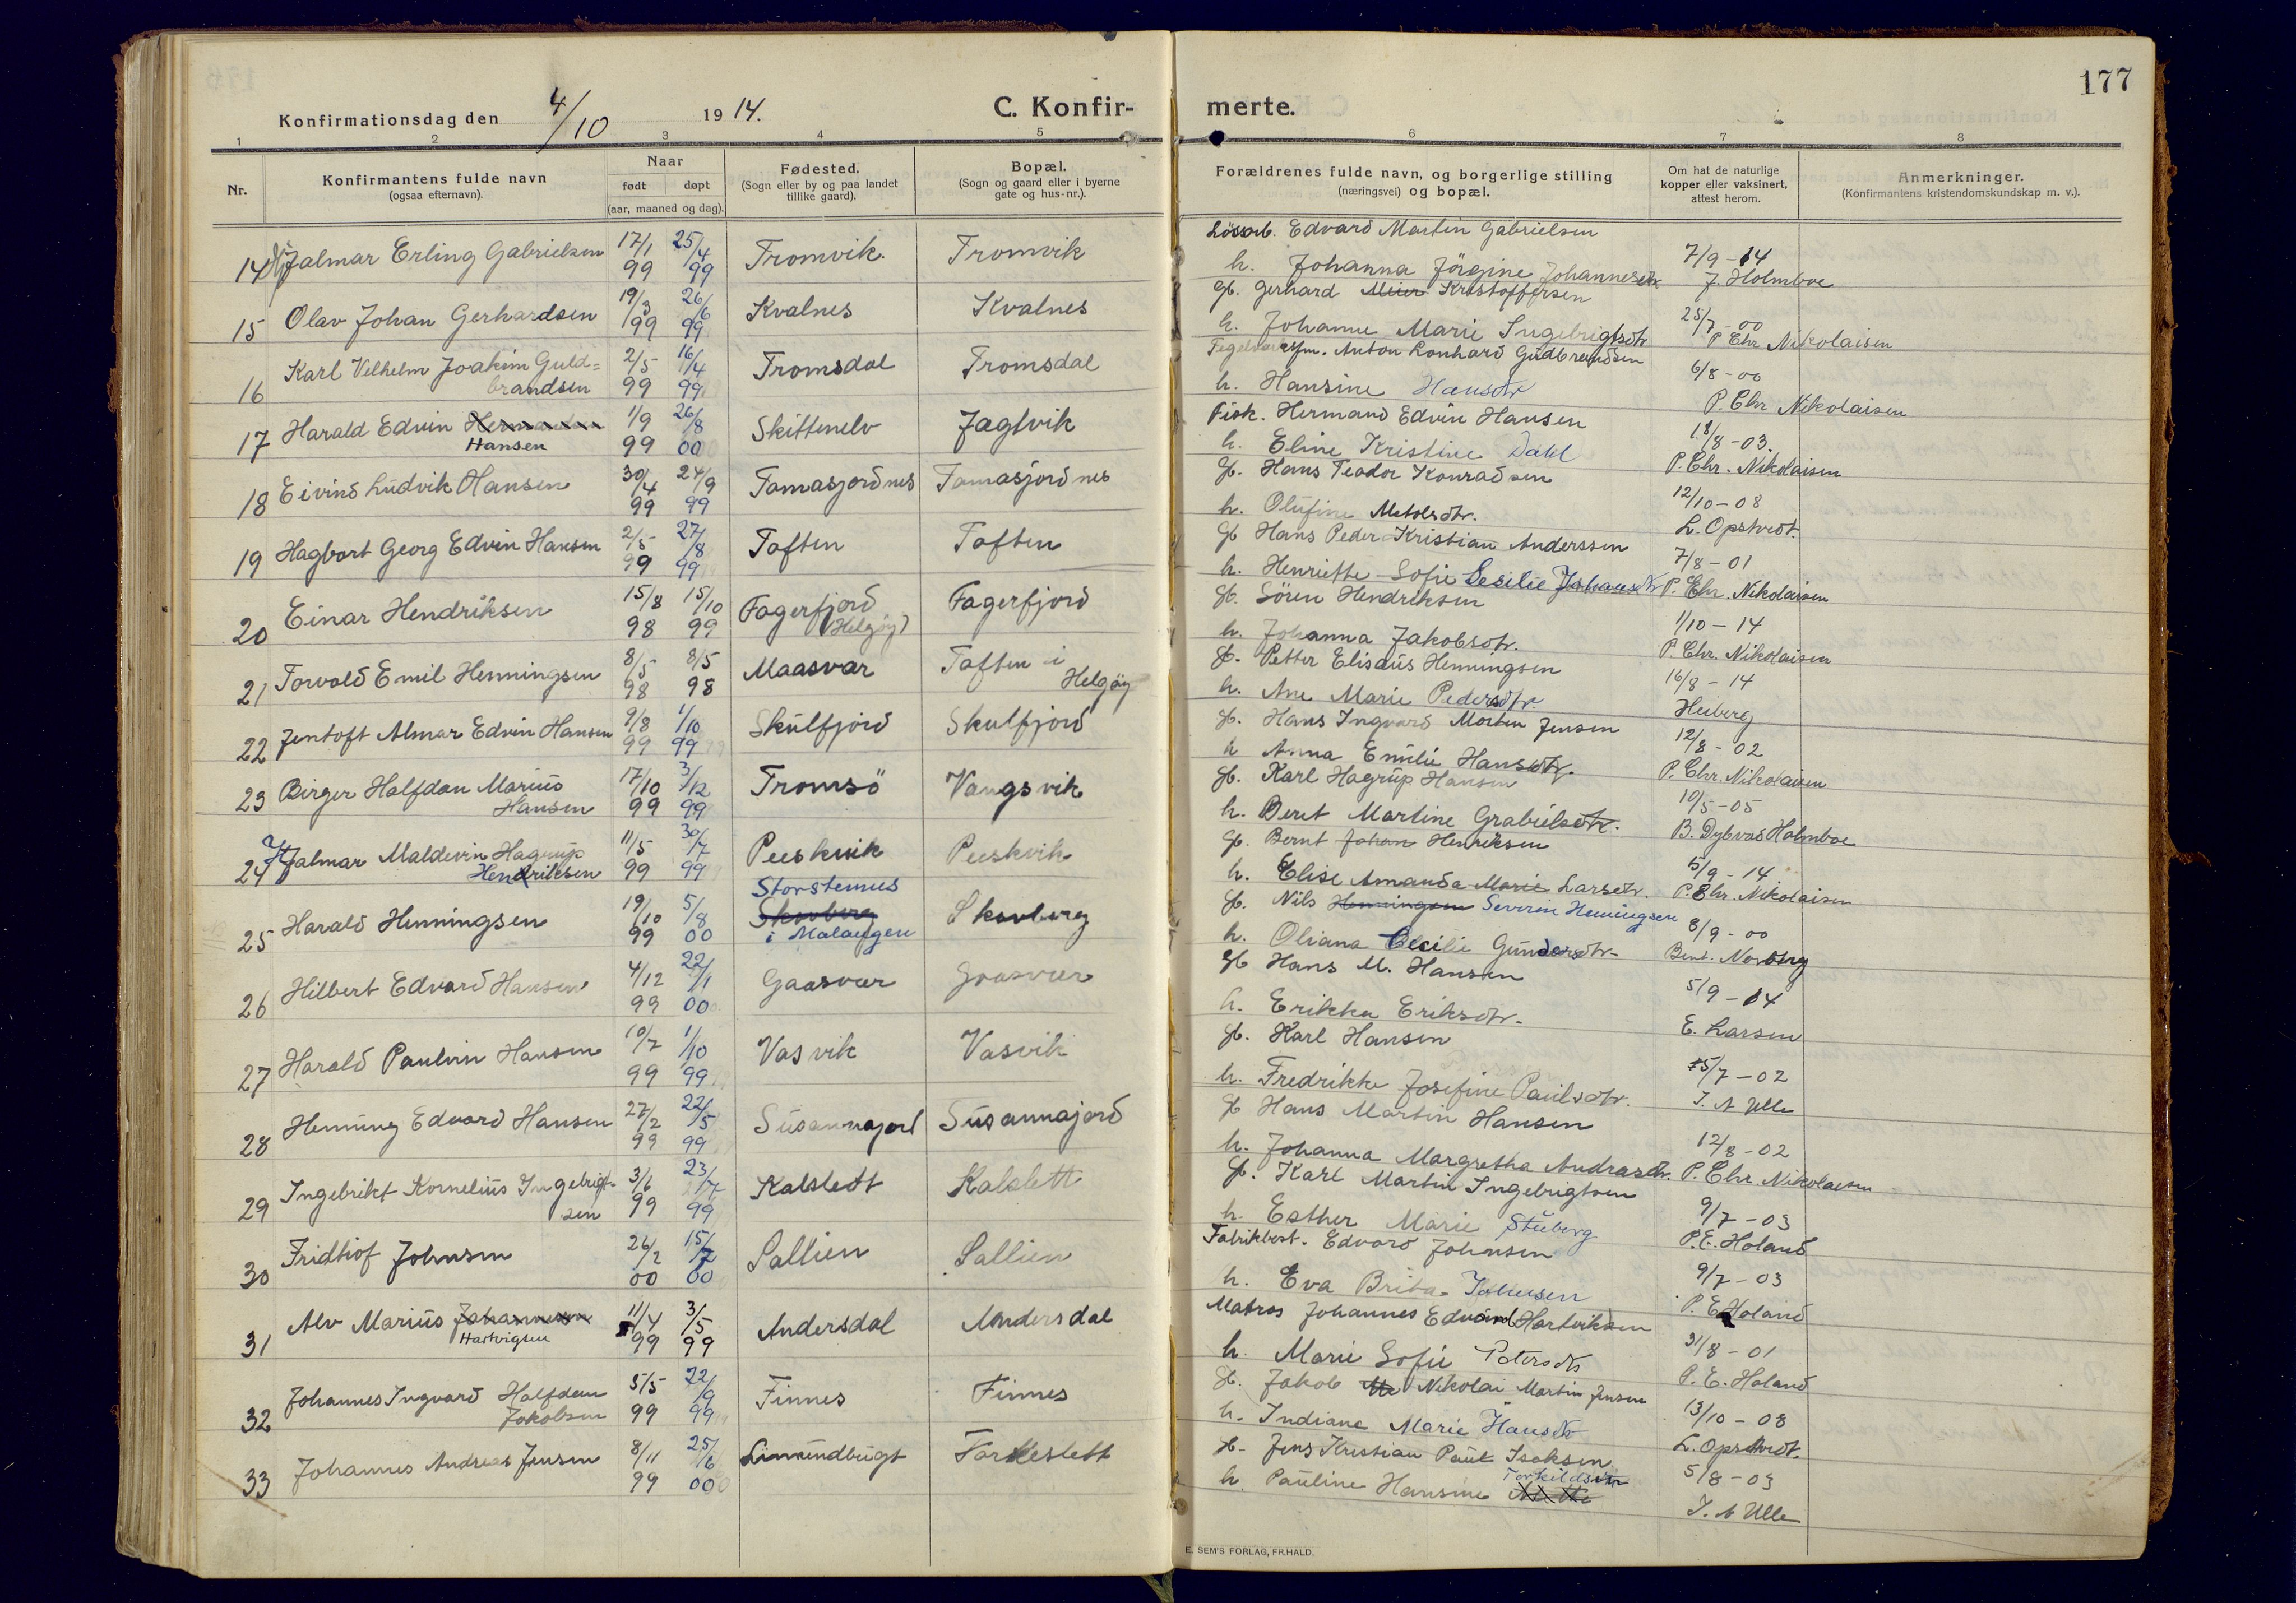 177
Konfirmationsdag den 4/10 1914.
C. Konfir-
merte.
1 2 3 4 5 6 7 8
Nr.
Konfirmantens fulde navn
(ogsaa efternavn).
Naar
født døpt
(aar, maaned og dag).
Fødested.
(Sogn eller by og paa landet
tillike gaard).
Bopæl.
(Sogn og gaard eller i byerne
gate og hus-nr.).
Forældrenes fulde navn, og borgerlige stilling
(næringsvei) og bopæl.
Om hat de naturlige
kopper eller vaksinert,
attest herom.
Anmerkninger.
(Konfirmantens kristendomskundskap m. v.).
14 Hjalmar Erling Gabrielsen 17/1 99 25/4 99 Tromvik. Tromvik
Løsarb. Edvard Martin Gabrielsen
h. Johanna Jörgine Johannesdtr. 7/9-14 J. Holmboe
15 Olav Johan Gerhardsen 19/3 99 26/6 99 Kvalnes Kvalnes
gb. Gerhard Meier Kristoffersen
h. Johanne Marie Ingebrigtsdtr 25/7-00 P Chr Nikolaisen
16 Karl Vilhelm Joakim Guld=
brandsen 2/5 99 16/4 99 Tromsdal Tromsdal
Teglverksfm. Anton Lonhard Gudbrandsen
h. Hansine Hansdtr 6/8-00 P. Chr Nikolaisen
17 Harald Edvin Hermansen
Hansen 1/9 99 26/8 00 Skittenelv Jagtvik
Fisk. Hermand Edvin Hansen
h. Eline Kristine Dahl 18/8-03. P. Chr. Nikolaisen
18 Eivind Ludvik Hansen 30/4 99 24/9 99 Tamasjordnes Tamasjordnes
gb. Hans Teodor Konradsen
h. Olufine Metolsdtr. 12/10-08 L. Opstvedt.
19 Hagbart Georg Edvin Hansen 2/5 99 27/8 99 Toften Toften
gb Hans Peder Kristian Anderssen
h. Henriette Sofie Cecilie Johansdtr 7/8-01 P. Chr. Nikolaisen
20 Einar Hendriksen 15/8 98 15/10 99 Fagerfjord
(Helgøy) Fagerfjord
gb. Sören Hendriksen
h. Johanna Jakobsdtr. 1/10-14 P. Chr. Nikolaisen
21 Torvald Emil Henningsen 8/5 98 8/5 98 Maasvar Toften i
Helgøy
gb. Petter Elisæus Henningsen
h. Ane Marie Pedersdtr. 16/8-14 Heiberg
22 Jentoft Almar Edvin Hansen 9/8 99 1/10 99 Skulfjord Skulfjord
gb. Hans Ingvard Morten Jensen
h Anna Emilie Hansdtr. 12/8-02 P. Chr. Nikolaisen
23 Birger Halfdan Marius
Hansen 17/10 99 3/12 99 Tromsö Vangsvik
gb. Karl Hagrup Hansen
h. Beret Martine Grabielsdtr. 10/5-05 B. Dybvad Holmboe
24 Hjalmar Maldevin Hagrup
Hendriksen 11/5 99 30/7 99 Peeskvik Peeskvik
gb. Bernt Johan Henriksen
h. Elise Amanda Marie Larsdtr. 5/9-14 P. Chr. Nikolaisen
25 Harald Henningsen 19/10 99 5/8 00 Storstennes
Skovberg
i Malangen Skovberg
gb. Nils Henningsen Severin Henningsen
h. Oliana Cecilie Gundersdtr. 8/9-00 Bent. Norberg
26 Hilbert Edvard Hansen 4/12 99 22/1 00 Gaasvær Gaasvær
gb Hans M. Hansen
h. Erikka Eriksdtr. 5/9-14 E. Larsen
27 Harald Paulvin Hansen 10/7 99 1/10 99 Vasvik Vasvik
gb. Karl Hansen
h. Fredrikke Josefine Paulsdtr. 15/7-02 I. A Ulle
28 Henning Edvard Hansen 27/2 99 22/5 99 Susannajord Susannajord
gb Hans Martin Hansen
h. Johanna Margretha Andrasdtr. 12/8-02 P. Chr. Nikolaisen
29 Ingebrikt Kornelius Ingebrigt-
sen 3/6 99 23/7 99 Kalslett Kalslett
gb. Karl Martin Ingebrigtsen
h. Esther Marie Stuberg 9/7-03 P.E. Holand
30 Fridtiof Johnsen 26/2 00 15/7 00 Sallien Sallien
Fabrikbest. Edvard Johnsen
h. Eva Brita Johnsen 9/7-03 P. E Holand
31 Alv Marius Johannesen
Hartvigsen 11/4 99 3/5 99 Andersdal Andersdal
Matros Johannes Edvard Hartviksen
h. Marie Sofie Petersdtr 31/8-01 P. E. Holand
32 Johannes Ingvard Halfdan
Jakobsen 5/5 99 22/9 99 Finnes Finnes
gb. Jakob Nikolai Martin Jensen
h. Indiana Marie Hansdtr 13/10-08 L. Opstvedt.
33 Johannes Andreas Jensen 8/11 99 25/6 00 Limundbugt Torkeslett
gb. Jens Kristian Paul Isaksen
h. Pauline Hansine Torkildsdtr 5/8-03 I. A Ulle
E. SEM'S FORLAG, FR.HALD.